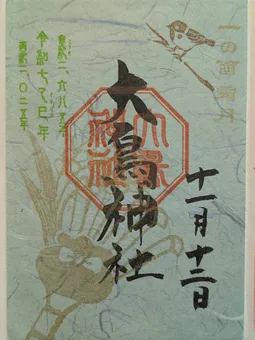 一の酉
大鳥神社
十一月十二日
皇紀二六八五年
令和七乙巳年
西暦二〇二五年